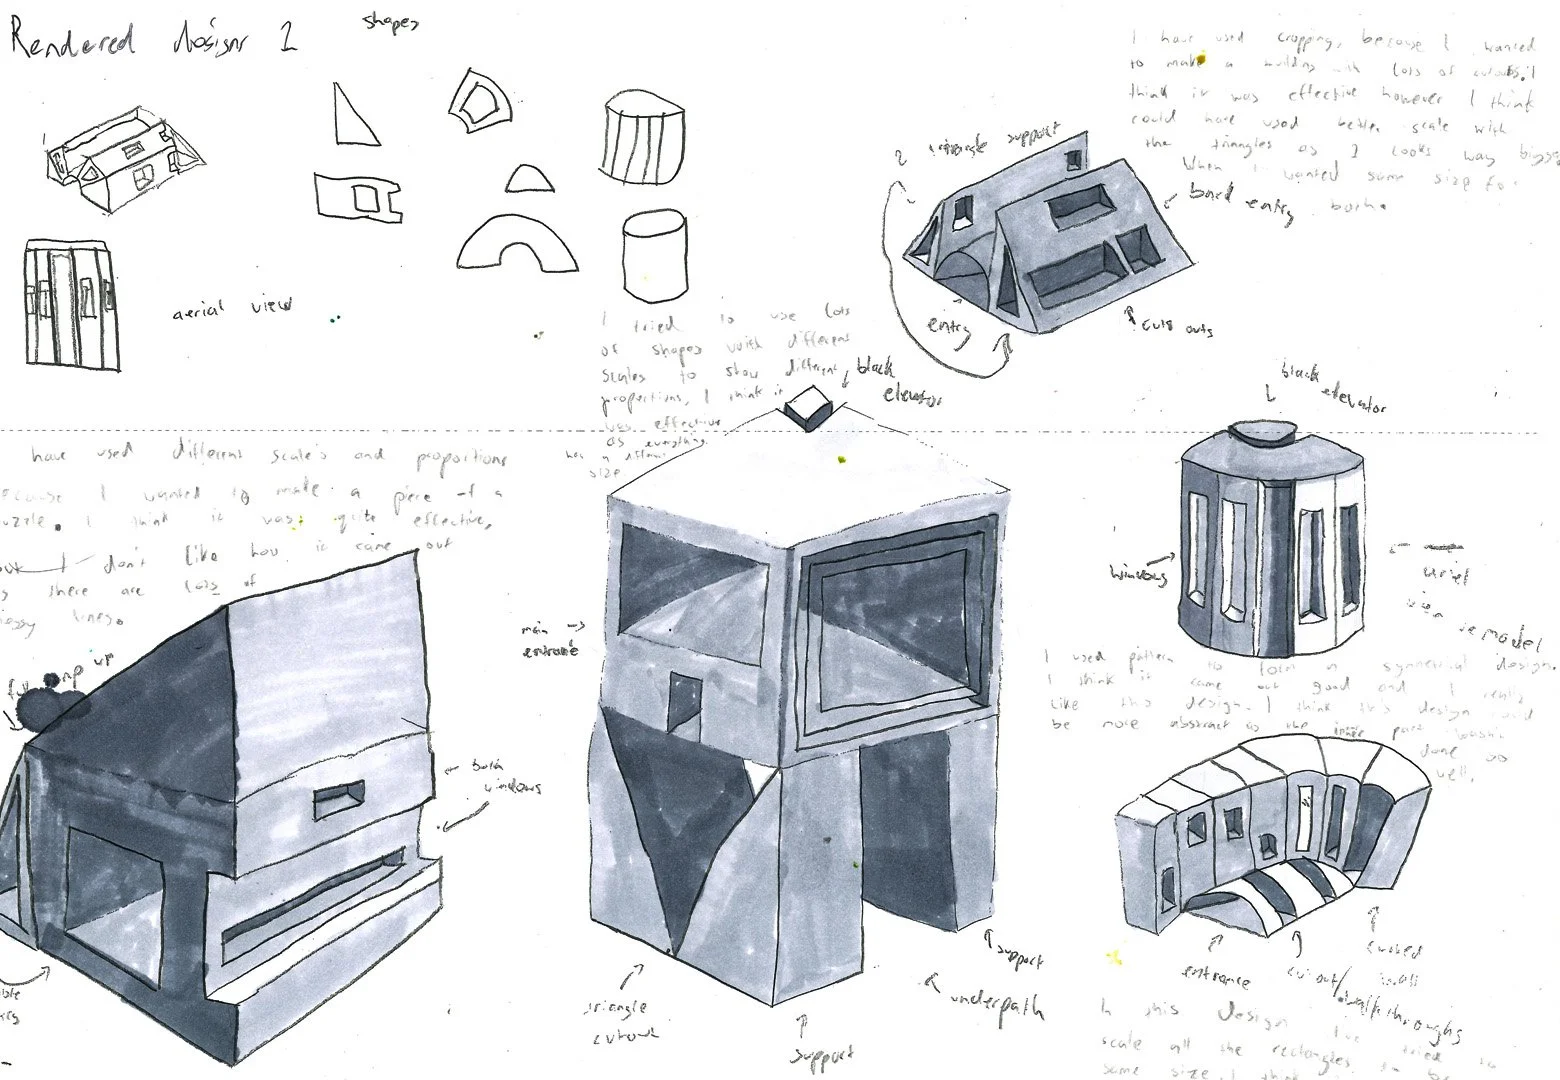 Rendered designs 1
shapes
aerial view
I have used cropping, because I wanted
to make a building with lots of cutouts. I
think it was effective however I think
could have used better scale with
the triangles as I looks way bigger
When I wanted same size for
both
2 triangle support
entry
cuts outs
I tried to use lots
of shapes with different
scales to show different
proportions, I think it
was effective
as everything
has a
size
black
elevator
black elevator
have used different scale's and proportions
I wanted to make a piece of a
I think it was quite effective,
I don't like how it came out
there are lots of
lines.
up
both
windows
main
entrance
triangle
cutout
support
support
underpath
windows
model
I used pattern to form a symmetrical design.
I think it came out good and I really
like this design. I think this design could
be more abstract as the part wasn't
done as
well.
entrance
curved
wall
cut out/walkthroughs
In this Design I've tried to
scale all the rectangles to be
same size. I think